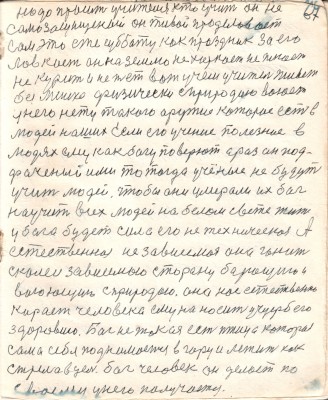 надо просит учителя кто учит он не
самозащищений он живой проделовает
сам Это ему субботу как праздник за его
ловкост он на землю не харкает не плюет
не курит и не пет вот у чем учител живет
без физически с природою воюет
у него нету такого аружие которае ест в
людей наших Если его учение полезние в
людях ему как богу поверют а раз он под-
даченый ими то тогда учёние не будут
учит людей чтобы они умерали их бог
научит всех людей на белом свете жит
у бога будет сила его не техническоя А
естественноя не зависемоя она гонит
сколе зависемаю сторану
воюющию с природою. она нас естественно
карает человека ему на носит ущуерб его
здоровию. Бог не такая ест птица которая
сама себя поднимается в гору и летит как
стрела Бог человек он делает по
своему у него получается.
67